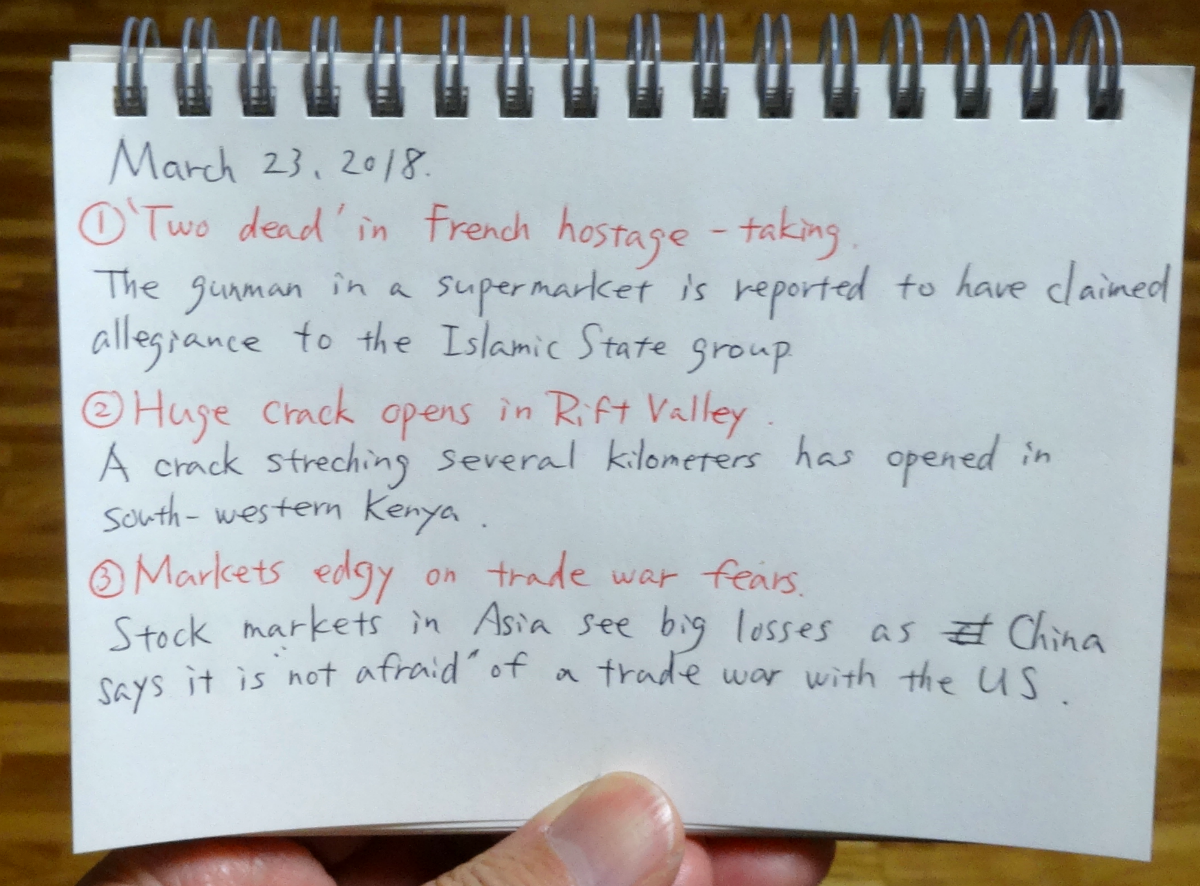 March 23, 2018.
① 'Two dead' in French hostage-taking.
The gunman in a supermarket is reported to have claimed
allegiance to the Islamic State group.
② Huge crack opens in Rift Valley.
A crack streching several kilometers has opened in
south-western Kenya.
③ Markets edgy on trade war fears.
Stock markets in Asia see big losses as China
says it is "not afraid" of a trade war with the US.